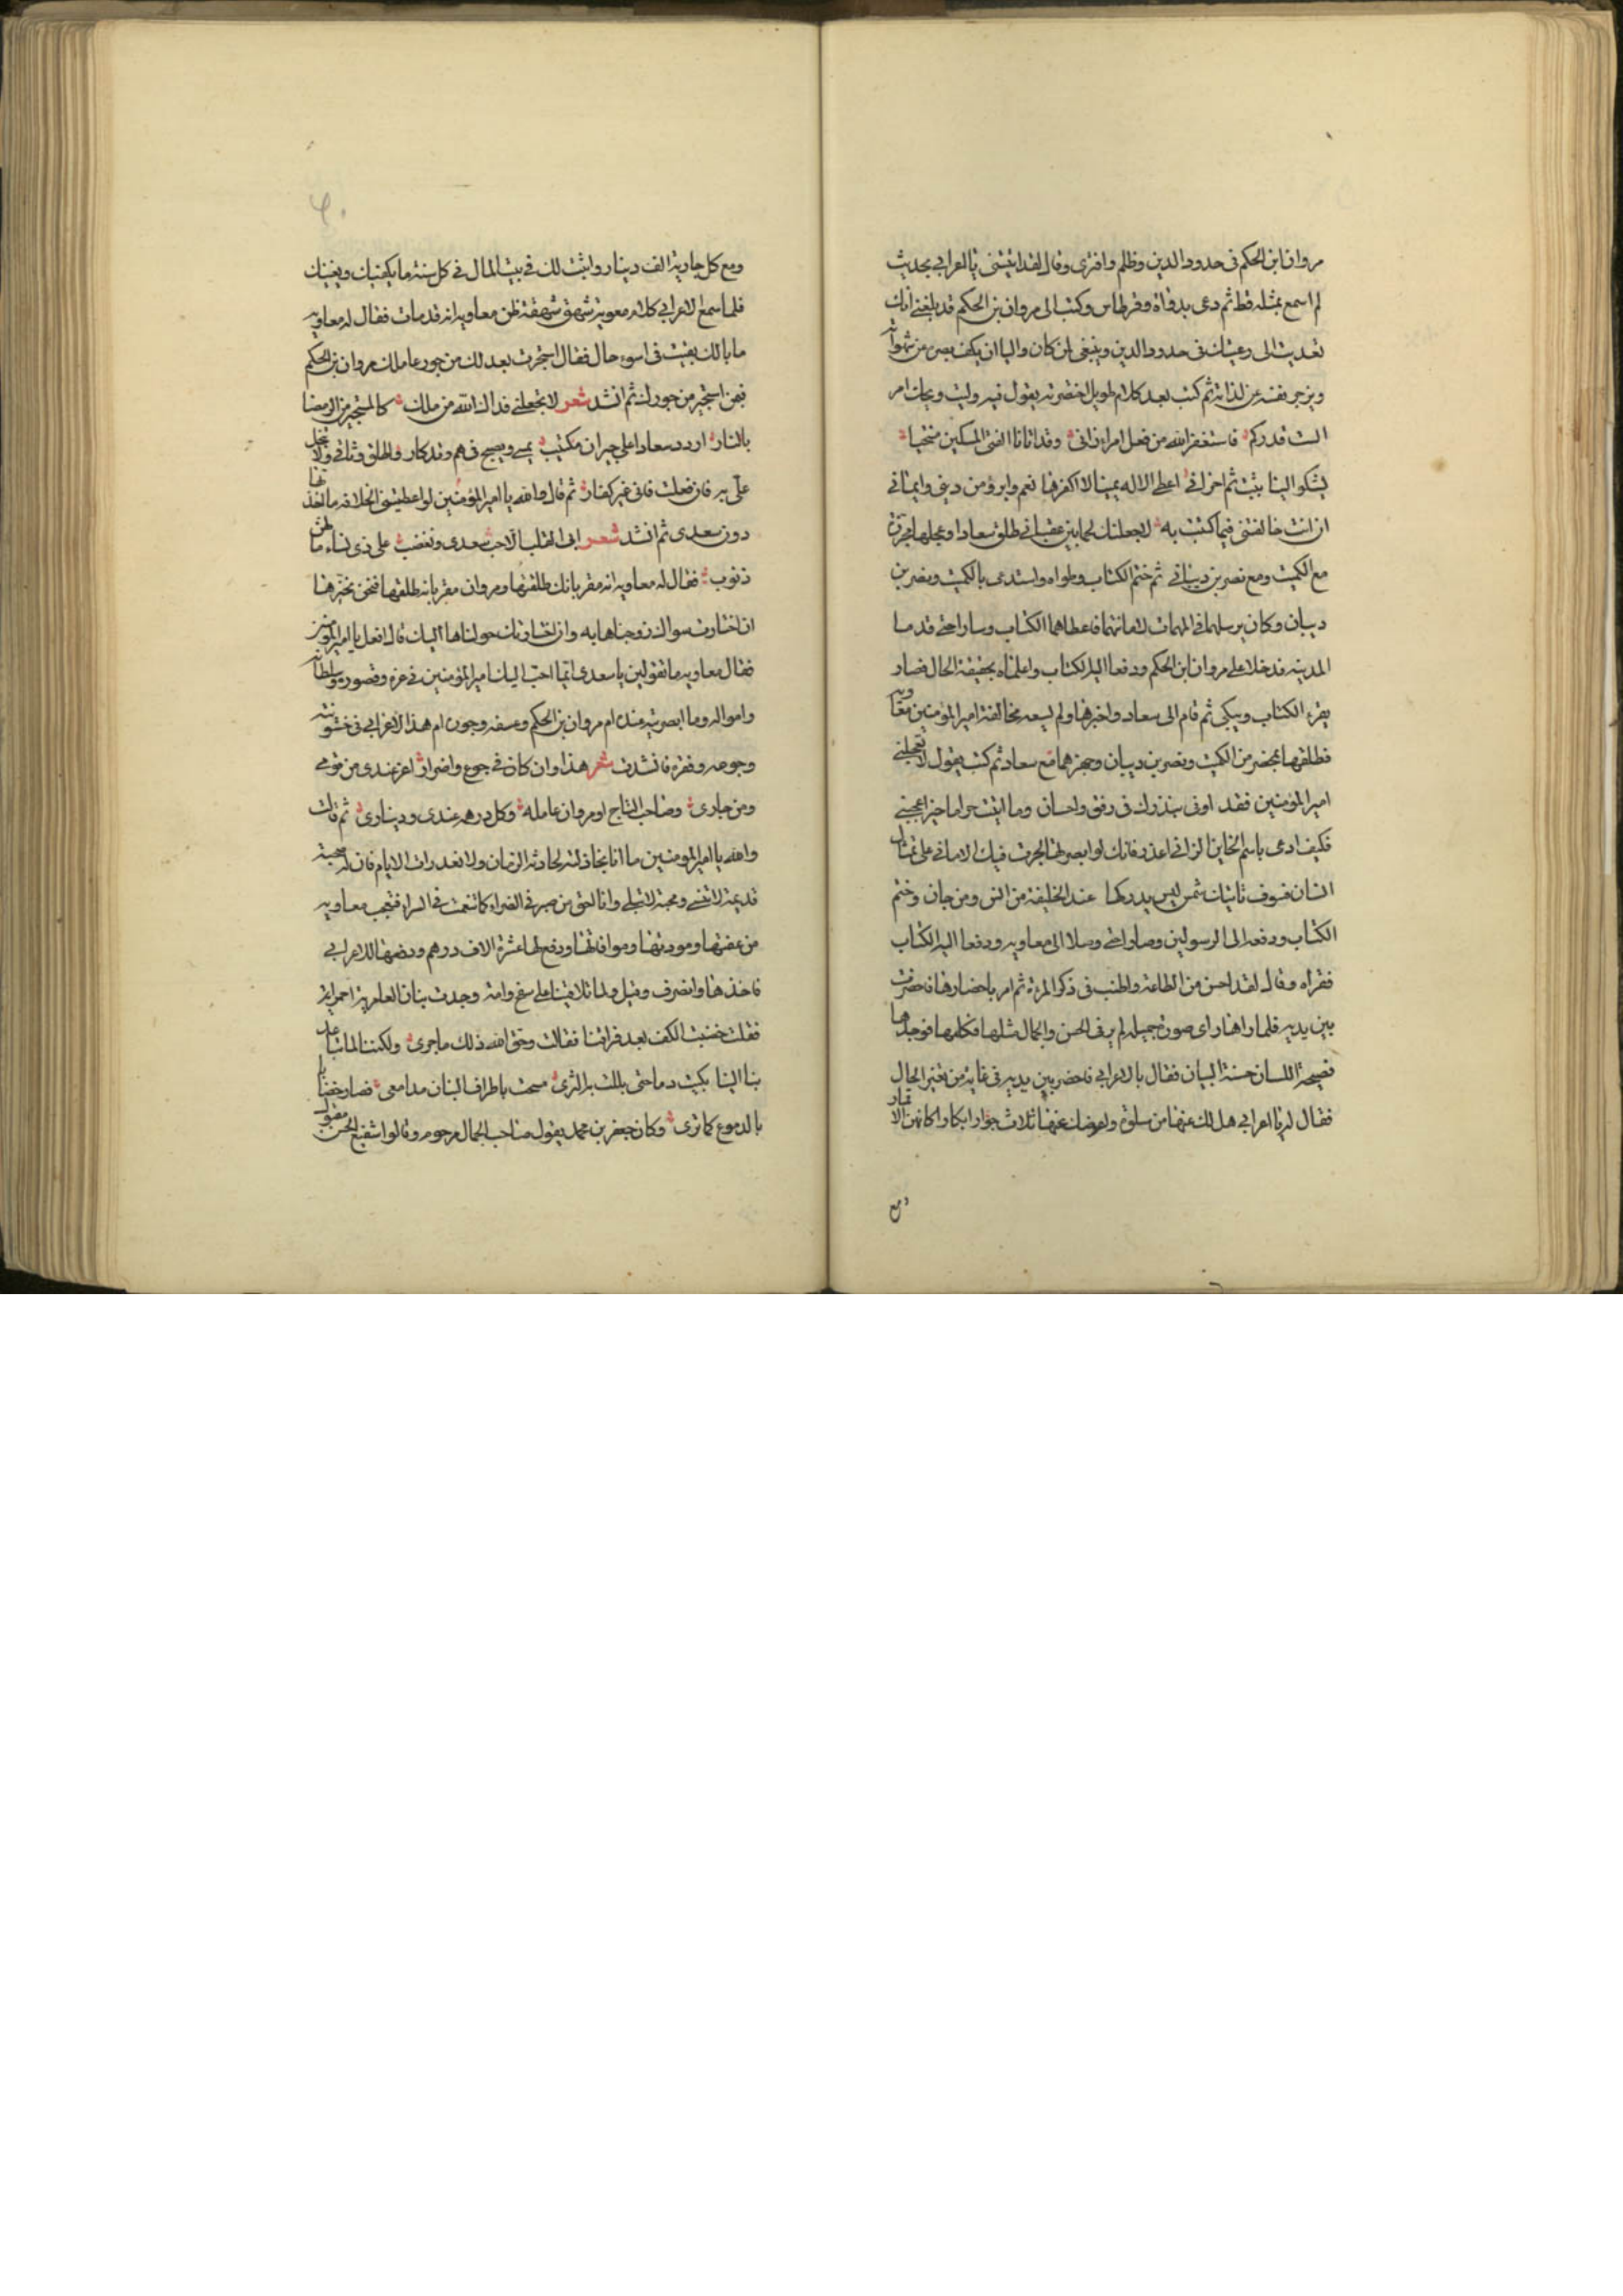 مروان ابن الحكم فى حدود الدين وظلم وافترى وقال لقد اتيتنى يا اعرابي بحديث
لم اسمع بمثله قط ثم دعى بدواة وقرطاس وكتب الى مروان بن الحكم قد بلغنے انك
تعديت الى رعيتك فى حدود الدين وينبغى لمن كان واليا ان يكف بصره عن شهواته
ويزجر نفسه عن لذاته ثم كتب بعد كلام طويل اختصرته يقول فيه وليت ويحك امر
الست تدركه فاستغفر الله من فعل امراء زانى وقد اتانا الفتى المسكين منتحبا
يشكو الينا ببث ثم احزانى اعطى الاله يمينا لا اكفرها نعم وابرؤ من دينى وايمانى
ان انت خالفتنى فيما كتبت به لاجعلنك لحما بين عقبانے طلق سعادا وعجلها مجهزة
مع الكميت ومع نصر بن ديبانے ثم ختم الكتاب وطواه واستدعى بالكميت ونصر بن
ديبان وكان يرسلهما فى المهمات لامانتهما فاعطاهما الكتاب وسارا حتى قدما
المدينه فدخلا على مروان ابن الحكم ودفعا اليه الكتاب واعلماه بحقيقة الحال فصار
يقرء الكتاب ويبكى ثم قام الى سعاد واخبرها ولم يسعه مخالفة امير المؤمنين معاويه
فطلقها بمحضر من الكميت ونصر بن ديبان وجهزهما مع سعاد ثم كتب يقول لا تعجلنے
امير المؤمنين فقد اوفى بنذرك فى رفق واحسان وما اتيت حراما حين اعجبنے
فكيف ادعى باسم الخاين الزانى اعذر فانك لو ابصرتها لجرت فيك الامانى على تمثال
انسان فسوف تاتيك شمس ليس يدركها عند الخليفة من انس ومن جان وختم
الكتاب ودفعه الى الرسولين وصارا حتى وصلا الى معاويه ودفعا اليه الكتاب
فقراه وقال لقد احسن من الطاعة واطنب فى ذكر المرءة ثم امر باحضارها فحضرت
بين يديه فلما راها راى صورة جميله لم ير فى الحسن والجمال مثلها فكلمها فوجدها
فصيحة اللسان حسنة البيان فقال بالاعرابى فاحضر بين يديه فى غاية من تغير الحال
فقال له يا اعرابى هل لك عنها من سلوة واعوضك عنها ثلاث جوار ابكارا كانهن الاقمار
ومع
ومع كل جارية الف دينار واثبت لك فى بيت المال فى كل سنة ما يكفيك ويغنيك
فلما سمع الاعرابى كلام معويه شهق شهقة ظن معاويه انه قد مات فقال له معاويه
ما بالك بقيت فى اسوء حال فقال استجرت بعدلك من جور عاملك مروان بن الحكم
فبمن استجير من جورك ثم انشد شعر لا تجعلنے فداك الله من ملك كالمستجير من الرمضا
بالنار اردد سعادا على حيران مكتئب يمسے ويصبح فى هم وتذكار واطلق وثاقى ولا تبخل
علي بها فان فعلت فانى غير كفار ثم قال والله يا امير المؤمنين لو اعطيتنى الخلافه ما اخذتها
دون سعدى ثم انشد شعر ابى القلب الا حب سعدى وتبغضت على ذى نساء ما لهن
ذنوب فقال له معاويه انه مقر بانك طلقتها ومروان مقر بانه طلقها فنحن نخيرها
ان اختارت سواك زوجناها به وان اختارتك حولناها اليك قال افعل يا امير المؤمنين
فقال معاويه ما تقولين يا سعدى ايما احب اليك امير المؤمنين فى عزه وقصوره وسلطانه
وامواله وما ابصرتيه عنده ام مروان بن الحكم وعسفه وجوره ام هذا الاعرابى فى خشونته
وجوعه وفقره فانشدت شعر هذا وان كان فى جوع واضرار اعز عندى من قومے
ومن جارى وصاحب التاج او مروان عامله وكل درهم عندى ودينارى ثم قالت
والله يا امير المومنين ما انا بخاذلته لحادثة الزمان ولا لغدرات الايام فان له صحبة
قديمة لا تنسے ومحبة لا تبلے وانا احق من صبر فى الضراء كما تنعمت فى السراء فتعجب معاويه
من عقلها ومودتها وموافاتها ودفع لها عشرة الاف درهم ودفعها للاعرابي
فاخذها وانصرف وقيل ولما تلاقينا على سفح رامة وجدت بنان العامرية احمرا
فقلت خضبت الكف بعد فراقنا فقالت وحق الله ذلك ما جرى ولكننا لما تباعد
بنا النيا بكيت دما حتى بللت به الثرى مسحت باطراف البنان مدامعى فصار خضابا
بالدموع كما ترى وكان جعفر بن محمد يقول صاحب الجمال مرحوم وقالوا شفيع الحسن مقبول